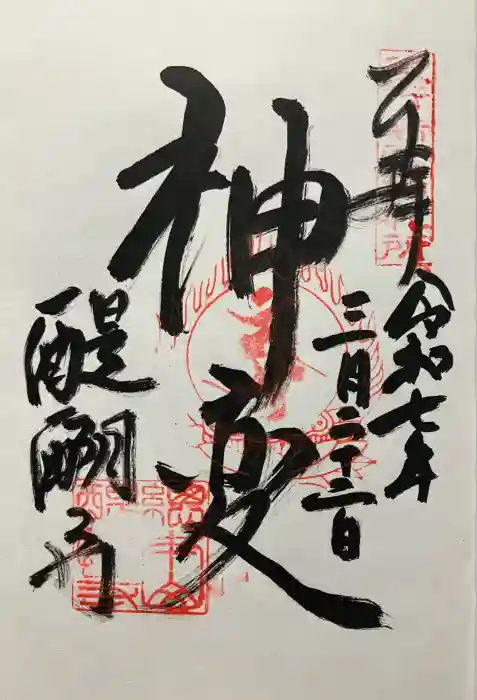 奉拝
令和七年
三月二十二日
神変
醍醐寺